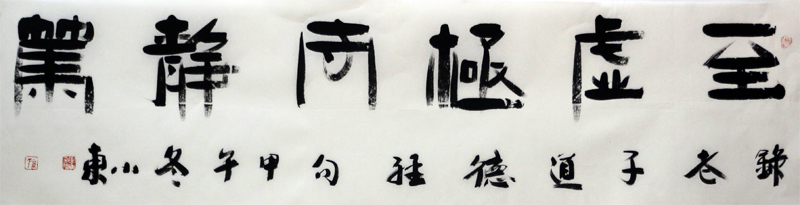 至虚極守静篤
錄老子道德經句甲午冬小東